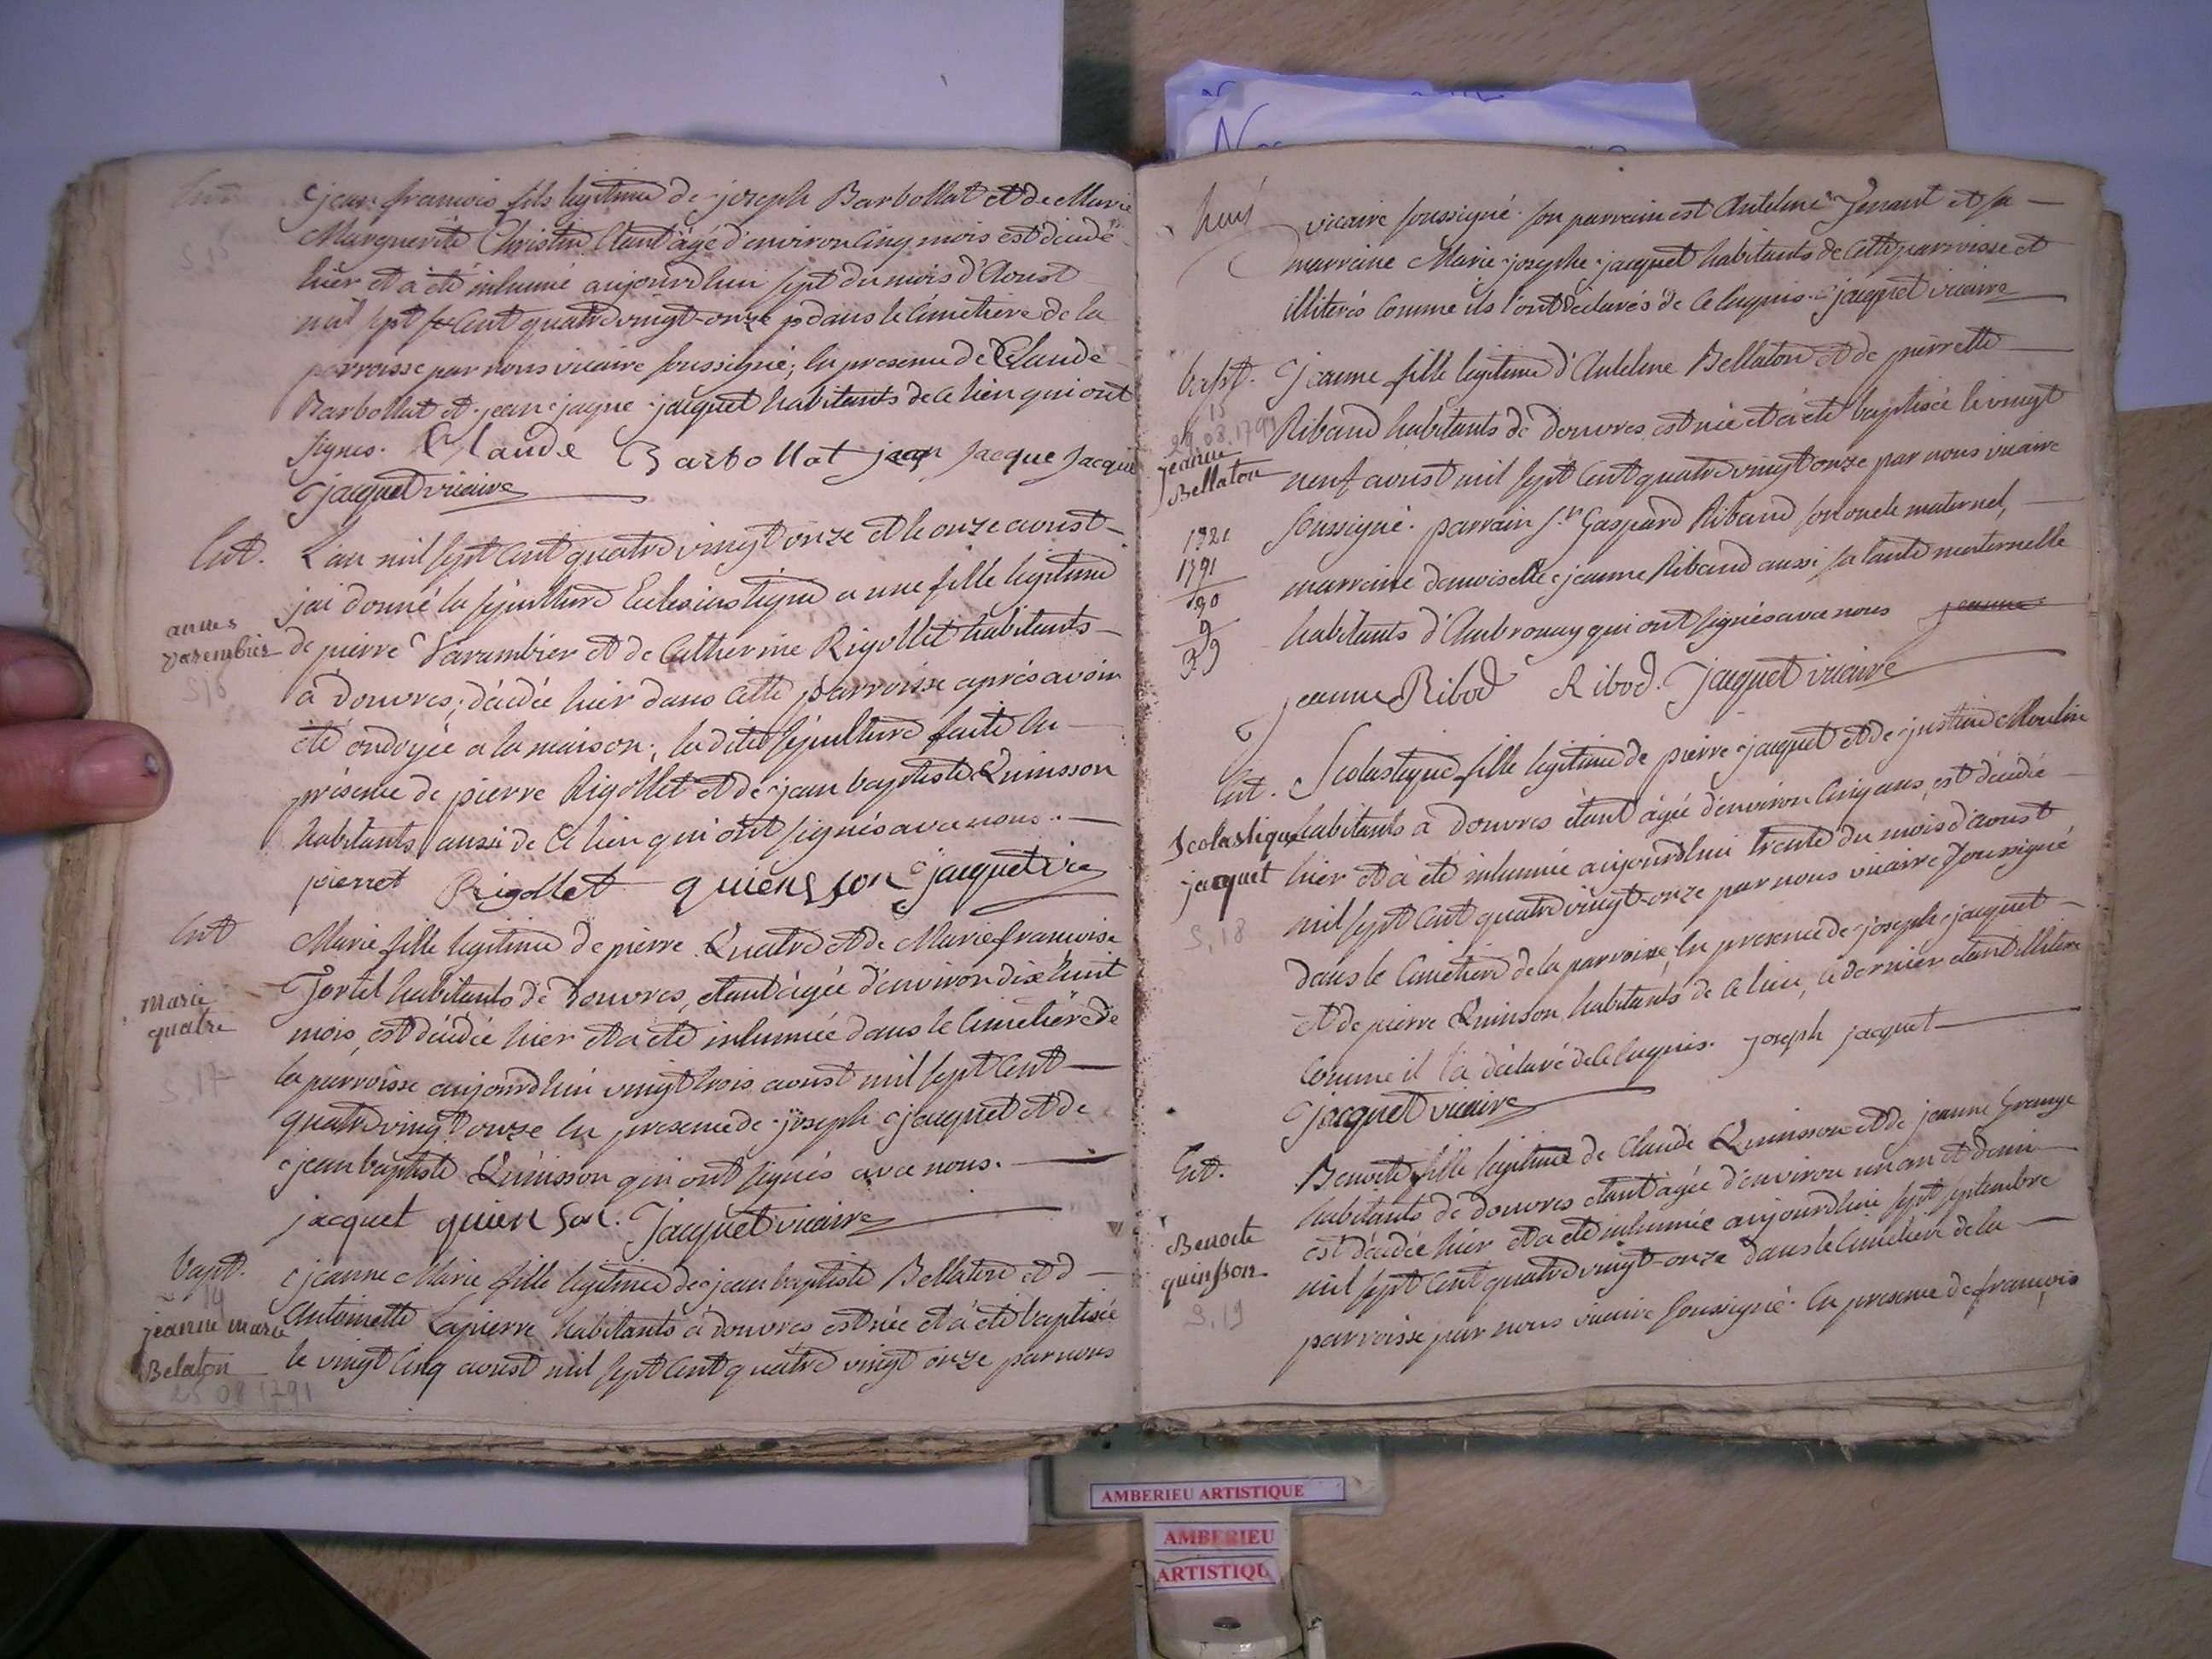 Ent.
S, 15
jean francois fils legitime de joseph Barbollat et de Marie
Marguerite Christin etant âgé d'environ cinq mois est décédé
hier et à été inhumé aujourdhui sept du mois d'Aoust
mil sept cent quatre vingt-onze dans le cimetiere de la
parroisse par nous vicaire soussigné; En presence de Claude
Barbollat et jean jaque jacquet habitants de ce lieu qui ont
signes. Claude Barbollat jean Jacque Jacquet
jacquet vicaire
Ent.
annes
varembier
S, 16
L'an mil sept cent quatre vingt onze et le onze aoust
jai donné la sépulture Ecclesiastique a une fille legitime
de pierre Varembier et de Catherine Rigollet habitants
à douvres; décédée hier dans cette parroisse après avoir
été ondoyée a la maison; la dite sépulture faite En
présence de pierre Rigollet et de jean baptiste Quinsson
habitants aussi de ce lieu qui ont signés avec nous.
pierret Rigollet quiensson jacquet vic
Ent
marie
quatre
S, 17
Marie fille legitime de pierre Quatre et de Marie francoise
habitants de Douvres, etant âgée d'environ dix huit
mois, est décédée hier et a été inhumée dans le Cimetière de
la parroisse aujourdhui vingt trois aoust mil sept cent
quatre vingt onze En presence de joseph jacquet et de
jean baptiste Quinsson qui ont signés avec nous.
jacquet quienson. Jacquet vicaire
bapt.
14
jeanne marie
Belaton
25 08 1791
jeanne Marie fille legitime de jean baptiste Bellaton et d
Antoinette Lapierre habitants à douvres est née et à été baptisée
le vingt cinq aoust mil sept cent quatre vingt onze par nous
vicaire soussigné. son parrain est Antelme et sa
marraine Marie josephe jacquet habitants de cette parroisse et
illiterés comme ils l'ont déclarés de ce Enquis. jacquet vicaire
bapt.
15
29.08.1791
jeanne
Bellaton
1821
1791
9
39
Jeanne fille legitime d'Antelme Bellaton et de pierrette
Riband habitants de douvres est née et a été baptisée le vingt
neuf aoust mil sept cent quatre vingt onze par nous vicaire
soussigné. parrain sr Gaspard Riband son oncle maternel,
marraine demoiselle jeanne Riband aussi sa tante maternelle
habitants d'Ambronay qui ont signés avec nous jeanne
jeanne Ribod Ribod. Jacquet vicaire
Ent.
Scolastique
jacquet
S, 18
Scolastique fille legitime de pierre jacquet et de justine Moulin
habitants a douvres étant âgée d'environ cinq ans, est décédée
hier et à été inhumée aujourdhui trente du mois d'aoust
mil sept cent quatre vingt-onze par nous vicaire soussigné
dans le Cimetière de la parroisse, En presence de joseph jacquet
et de pierre Quinson habitants de ce lieu, ce dernier etant illitere
comme il l'a déclaré de ce Enquis. joseph jacquet
Jacquet vicaire
Ent.
Benoite
quinsson
S, 19
Benoite fille legitime de Claude Quinsson et de jeanne Grange
habitants de douvres etant âgée d'environ un an et demi
est décédée hier et a été inhumée aujourdhui sept septembre
mil sept cent quatre vingt-onze dans le Cimetiere de la
parroisse par nous vicaire soussigné. En presence de françois
AMBERIEU ARTISTIQUE
AMBERIEU
ARTISTIQU